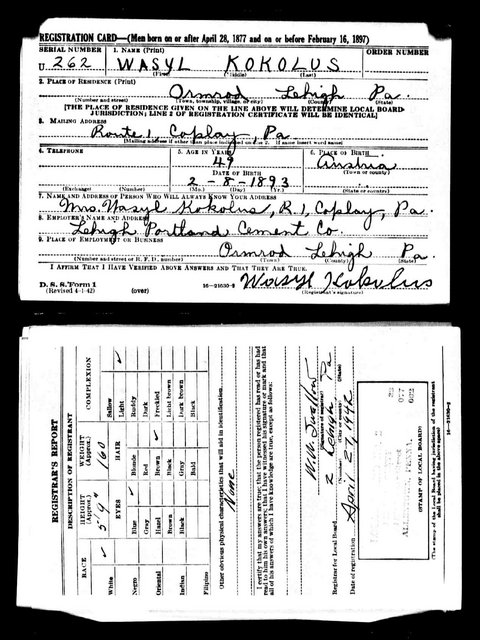 REGISTRATION CARD—(Men born on or after April 28, 1877 and on or before February 16, 1897)
SERIAL NUMBER 1. NAME (Print) ORDER NUMBER
U 262 WASYL KOKOLUS
(First) (Middle) (Last)
2. PLACE OF RESIDENCE (Print)
Ormrod Lehigh Pa.
(Number and street) (Town, township, village, or city) (County) (State)
[THE PLACE OF RESIDENCE GIVEN ON THE LINE ABOVE WILL DETERMINE LOCAL BOARD
JURISDICTION; LINE 2 OF REGISTRATION CERTIFICATE WILL BE IDENTICAL]
3. MAILING ADDRESS
Route 1, Coplay, Pa
[Mailing address if other than place indicated on line 2. If same insert word same]
4. TELEPHONE 5. AGE IN YEARS 6. PLACE OF BIRTH
49 Austria
DATE OF BIRTH (Town or county)
2-8-1893
(Exchange) (Number) (Mo.) (Day) (Yr.) (State or country)
7. NAME AND ADDRESS OF PERSON WHO WILL ALWAYS KNOW YOUR ADDRESS
Mrs. Wasyl Kokolus, R.1, Coplay, Pa.
8. EMPLOYER'S NAME AND ADDRESS
Lehigh Portland Cement Co.
9. PLACE OF EMPLOYMENT OR BUSINESS
Ormrod Lehigh Pa.
(Number and street or R. F. D. number) (Town) (County) (State)
I AFFIRM THAT I HAVE VERIFIED ABOVE ANSWERS AND THAT THEY ARE TRUE.
D. S. S. Form 1 Wasyl Kokolus
(Revised 4-1-42) (over) 16—21630-2 (Registrant's signature)
REGISTRAR'S REPORT
DESCRIPTION OF REGISTRANT
RACE HEIGHT (Approx.) WEIGHT (Approx.) COMPLEXION
5'9" 160
EYES HAIR
White ✓ Sallow
Light ✓
Negro Blue ✓ Blonde Ruddy
Gray Red Dark
Oriental Hazel Brown ✓ Freckled
Brown Black Light brown
Indian Black Gray Dark brown
Bald Black
Filipino
Other obvious physical characteristics that will aid in identification.
None
I certify that my answers are true; that the person registered has read or has had
read to him his own answers; that I have witnessed his signature or mark and that
all of his answers of which I have knowledge are true, except as follows:
Registrar for Local Board 2 Lehigh Pa
(Number) (City or county) (State)
Date of registration April 27, 1942
077
(STAMP OF LOCAL BOARD)
(The stamp of the Local Board having jurisdiction of the registrant
shall be placed in the above space)
16—21630-2